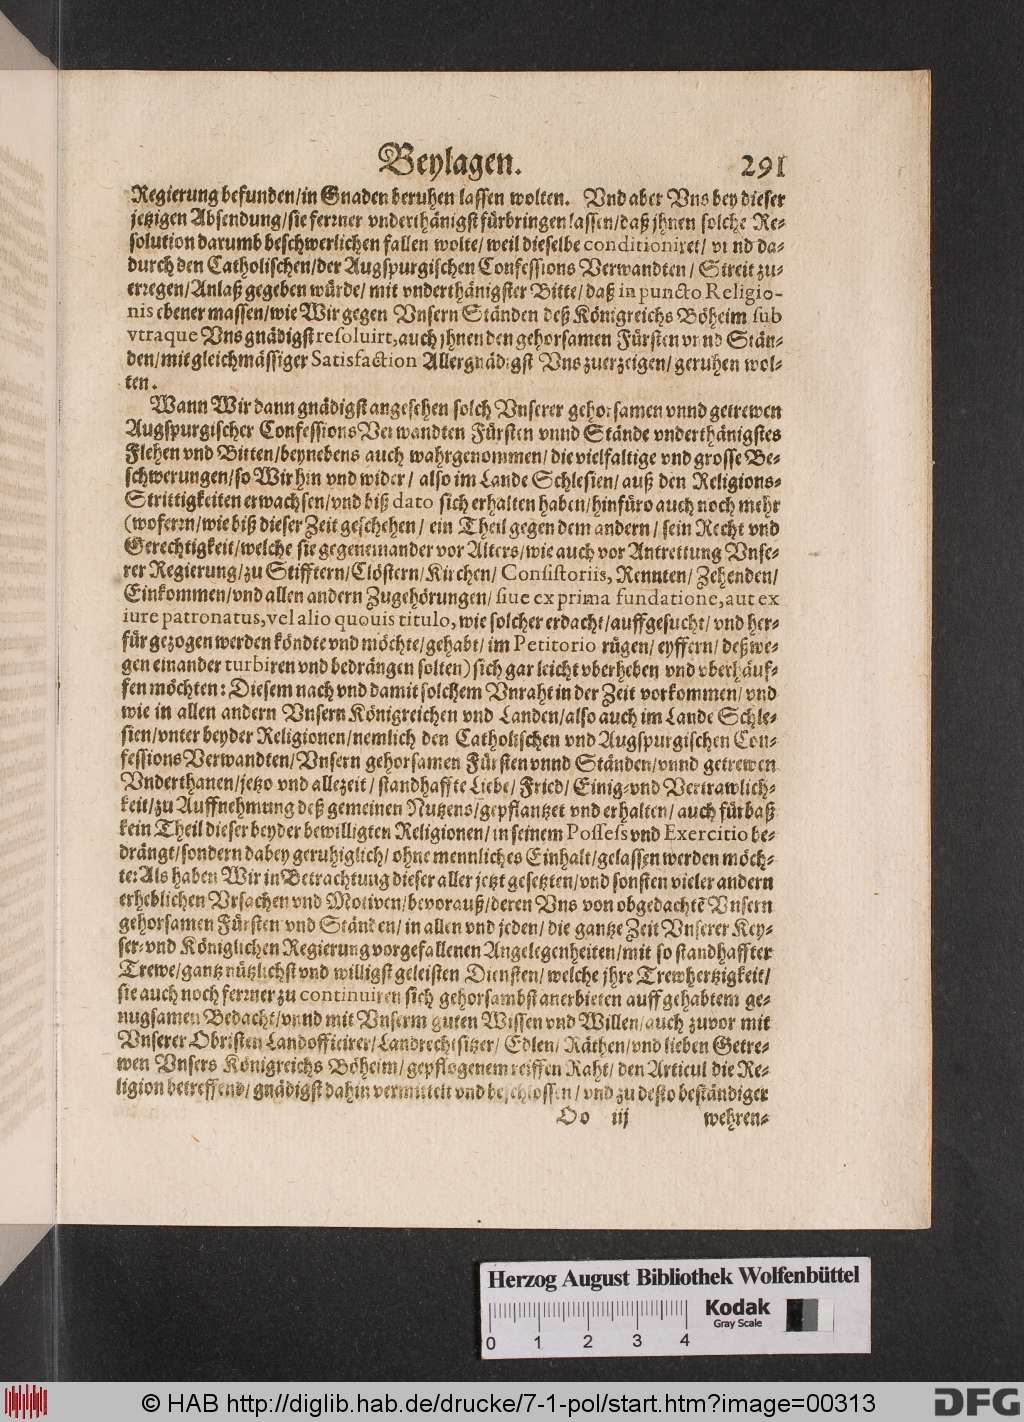 Beylagen. 291
Regierung befunden/in Gnaden beruhen lassen wolten. Vnd aber Vns bey dieser
jetzigen Absendung/sie ferrner vnderthänigst fürbringen lassen/daß jhnen solche Re-
solution darumb beschwerlichen fallen wolte/ weil dieselbe conditioniret/ vnnd da-
durch den Catholischen/der Augspurgischen Confessions Verwandten/ Streit zu-
erregen/Anlaß gegeben würde/ mit vnderthänigster Bitte/ daß in puncto Religio-
nis ebener massen/wie Wir gegen Vnsern Ständen deß Königreichs Böheim sub
vtraque Vns gnädigst resoluirt, auch jhnen den gehorsamen Fürsten vnnd Stän-
den/mit gleichmässiger Satisfaction Allergnädigst Vns zuerzeigen/ geruhen wol-
ten.
Wann Wir dann gnädigst angesehen solch Vnserer gehorsamen vnnd getrewen
Augspurgischer Confessions Verwandten Fürsten vnnd Stände vnderthänigstes
Flehen vnd Bitten/beynebens auch wahrgenommen/ die vielfaltige vnd grosse Be-
schwerungen/so Wir hin vnd wider/ also im Lande Schlesien/ auß den Religions-
Strittigkeiten erwachsen/vnd biß dato sich erhalten haben/hinfüro auch noch mehr
(woferrn/wie biß dieser Zeit geschehen/ ein Theil gegen dem andern/ sein Recht vnd
Gerechtigkeit/welche sie gegeneinander vor Alters/wie auch vor Antrettung Vnse-
rer Regierung/zu Stifftern/Clöstern/Kirchen/ Consistoriis, Rennten/ Zehenden/
Einkommen/vnd allen andern Zugehörungen/ siue ex prima fundatione, aut ex
iure patronatus, vel alio quouis titulo, wie solcher erdacht/auffgesucht/ vnd her-
für gezogen werden köndte vnd möchte/gehabt/ im Petitorio rügen/ eyffern/ deßwe-
gen einander turbiren vnd bedrängen solten) sich gar leicht vberheben vnd vberhäuf-
fen möchten: Diesem nach vnd damit solchem Vnraht in der Zeit vorkommen/ vnd
wie in allen andern Vnsern Königreichen vnd Landen/also auch im Lande Schle-
sien/vnter beyder Religionen/nemlich den Catholischen vnd Augspurgischen Con-
fessions Verwandten/ Vnsern gehorsamen Fürsten vnnd Ständen/vnnd getrewen
Vnderthanen/jetzo vnd allezeit/ standhaffte Liebe/ Fried/ Einig-vnd Vertrawlich-
keit/zu Auffnehmung deß gemeinen Nutzens/gepflantzet vnd erhalten/ auch fürbaß
kein Theil dieser beyder bewilligten Religionen/ in seinem Possess vnd Exercitio be-
drängt/sondern dabey geruhiglich/ ohne mennliches Einhalt/gelassen werden möch-
te: Als haben Wir in Betrachtung dieser aller jetzt gesetzten/vnd sonsten vieler andern
erheblichen Vrsachen vnd Motiven/bevorauß/deren Vns von obgedachtē Vnsern
gehorsamen Fürsten vnd Ständen/ in allen vnd jeden/ die gantze Zeit Vnserer Key-
ser-vnd Königlichen Regierung vorgefallenen Angelegenheiten/mit so standhaffter
Trewe/gantz nützlichst vnd willigst geleisten Diensten/ welche jhre Trewhertzigkeit/
sie auch noch ferrner zu continuiren sich gehorsambst anerbieten auff gehabtem ge-
nugsamen Bedacht/vnnd mit Vnserm guten Wissen vnd Willen/auch zuvor mit
Vnserer Obristen Landofficirer/Landrechtsitzer/ Edlen/ Räthen/vnd lieben Getre-
wen Vnsers Königreichs Böheim/ gepflogenem reiffen Raht/ den Articul die Re-
ligion betreffend/ gnädigst dahin vermittelt vnd beschlossen/ vnd zu desto beständiger
Oo iij wehren-
Herzog August Bibliothek Wolfenbüttel
Kodak
Gray Scale
0 1 2 3 4
© HAB http://diglib.hab.de/drucke/7-1-pol/start.htm?image=00313
DFG